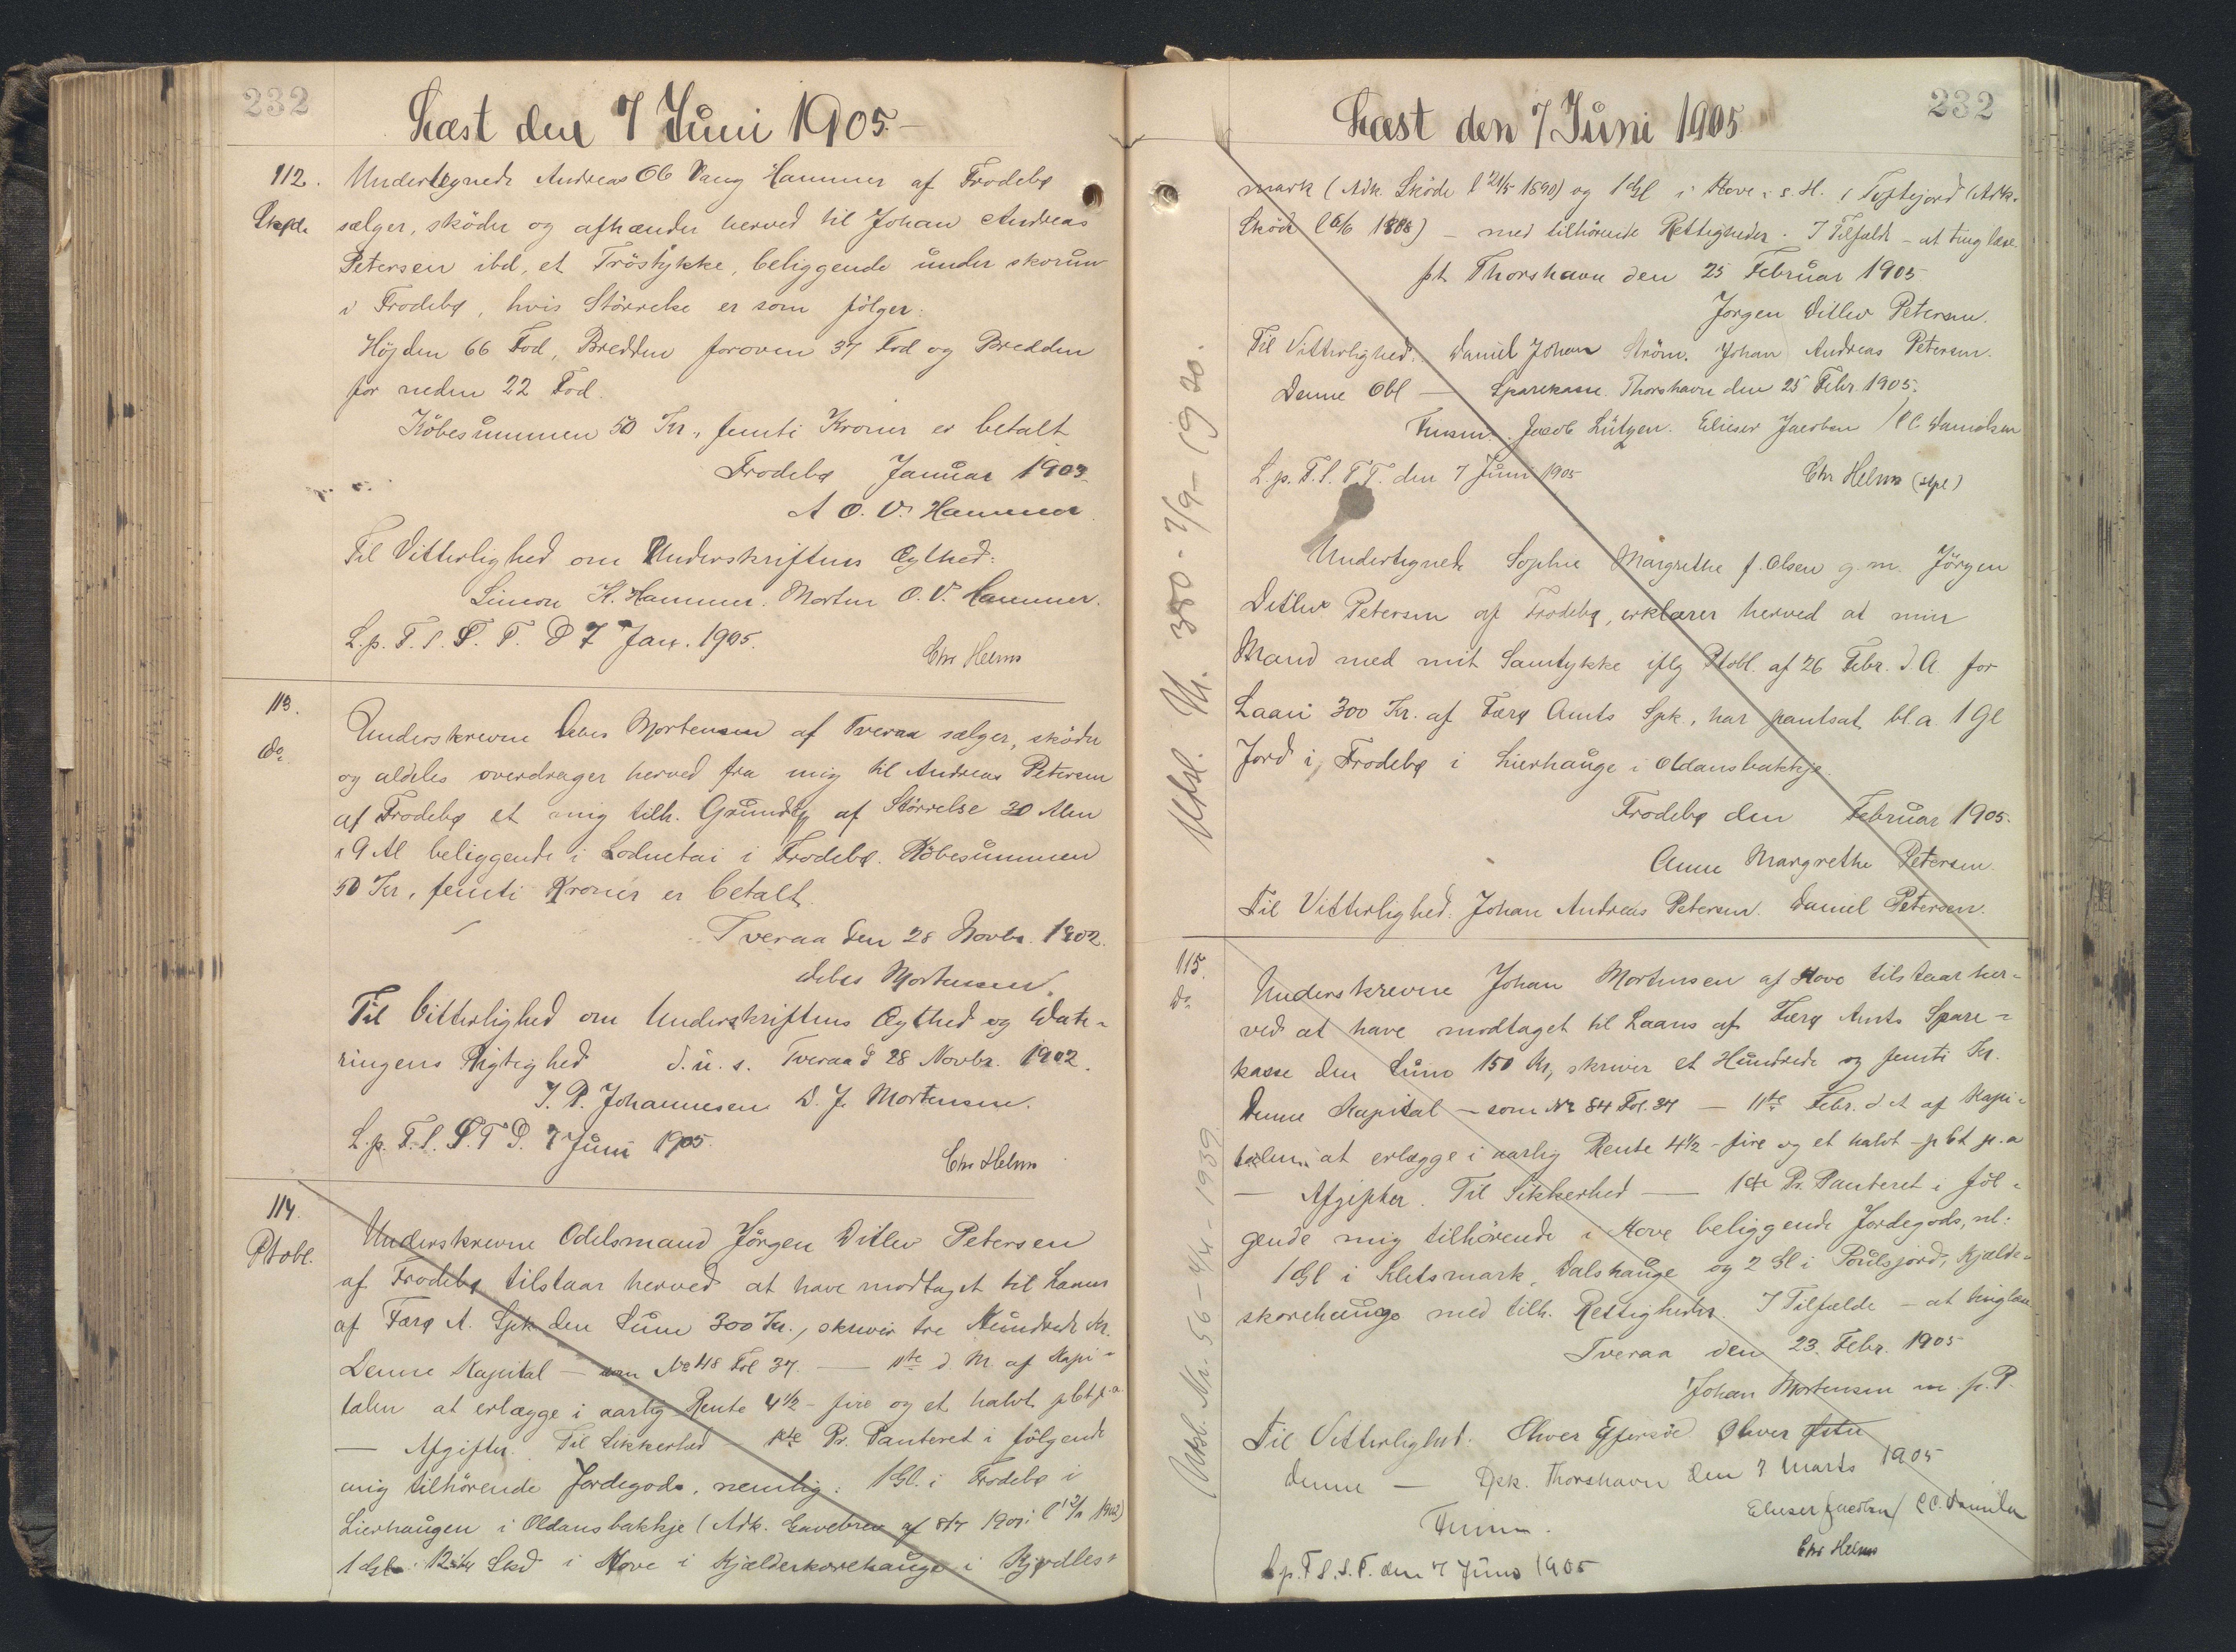 232
Læst den 7 Juni 1905.-
112. Undertegnede Andreas Ob Vang Hammer af Frodebø
Skøde sælger, skøder og afhænder herved til Johan Andreas
Petersen ibd, et Tröstykke, beliggende under skorun
i Frodebø, hvis Störrelse er som fölger:
Höjden 66 Fod, Bredden foroven 37 Fod og Bredden
for neden 22 Fod.
Köbesummen 50 Kr., femti Kroner er betalt
Frodebø Januar 1903.
A O. V. Hammer.
Til Vitterlighed om Underskriftens Ægthed:
Simon H. Hammer. Morten O. V. Hammer.
L. p. F. S. S. T. D 7 Jan. 1905.
Chr Helms
113.
Do.
Underskrevne Debes Mortensen af Tveraa sælger, skøder
og aldeles overdrager herved fra mig til Andreas Petersen
af Frodebø et mig tilh. Grundst. af Störrelse 30 Alen
x 9 Al beliggende i i Frodebø. Köbesummen
50 Kr, femti Kroner er betalt.
Tveraa den 28 Novbr. 1902.
Debes Mortensen.
Til Vitterlighed om Underskriftens Ægthed og Date-
ringens Rigtighed d. u. s. Tveraa d 28 Novbr. 1902.
J. P. Johannesen D. J. Mortensen.
L. p. F. S. S. T D. 7 Juni 1905.
Chr Helms
114.
Ptobl.
Underskrevne Odelsmand Jörgen Ditlev Petersen
af Frodebø tilstaar herved at have modtaget til Laans
af Færø A. Spk den Sum 300 Kr., skriver tre Hundrede Kr.
Denne Kapital — som No 48 Fol 37. — 11te d. M. af Kapi-
talen at erlægge i aarlig Rente 4½ - fire og et halvt pCt p. a.
— Afgifter. Til Sikkerhed — 1ste Pr. Panteret i fölgende
mig tilhörende Jordegods, nemlig: 1 Gl. i Frodebø i
Lierhaugen i Oldansbakkje (Adk. Gavebrev af 8/7 1901
1 Gl 12 Skd i Hove i Kjælderskorehauge i
232
Læst den 7 Juni 1905
mark (Adk. Sköde l 21/5 1890) og 1 Gl i Hove s. H. i Toftejord (Adk.
Sköde l 6/6 1888) — med tilhörende Rettigheder. I Tilfælde — at tinglæse.
pt. Thorshavn den 25 Februar 1905.
Jörgen Ditlev Petersen.
Til Vitterlighed: Daniel Johan Ström. Johan Andreas Petersen.
Denne Obl — Sparekasse. Thorshavn den 25 Febr. 1905.
Jacob Lützen. Elieser Jacobsen / C C. Danielsen
L. p. F. S. S. T. den 7 Juni 1905
Chr Helms
Undertegnede Sophie Margrethe f. Olsen g. m. Jörgen
Ditlev Petersen af Frodebø, erklærer herved at min
Mand med mit Samtykke iflg Ptobl. af 26 Febr. d. A. for
Laan 300 Kr. af Færø Amts Spk., har pantsat bl. a. 1 Gl
Jord i Frodebø i Lierhauge i Oldansbakkje.
Frodebø den Februar 1905.
Anne Margrethe Petersen
Til Vitterlighed: Johan Andreas Petersen. Daniel Petersen.
Udsl. N. 380 - 7/9 - 1920.
115.
Do.
Underskrevne Johan Mortensen af Hove tilstaar her-
ved at have modtaget til Laans af Færø Amts Spare-
kasse den Sum 150 Kr, skriver et Hundrede og femti Kr.
Denne Kapital — som No 84 Fol. 37 — 11te Febr. d. A af Kapi-
talen at erlægge i aarlig Rente 4½ - fire og et halvt - pCt p. a
— Afgifter. Til Sikkerhed — 1ste Pr. Panteret i föl-
gende mig tilhörende i Hove beliggende Jordegods, nl:
1 Gl i Kletsmark, Dalshauge og 2 Gl i Poulsjord, Kjælde-
skorehauge med tilh. Rettigheder. I Tilfælde — at tinglæse
Tveraa den 23. Febr. 1905
Johan Mortensen m. p. P.
Til Vitterlighed. Oliver Effersöe. Oliver
Denne — Spk. Thorshavn den 7 Marts 1905
Elieser Jacobsen / C C. Danielsen
Chr Helms
L p. F S. S. T. den 7 Juni 1905
Udsl. Nr. 56 - 4/4 - 1939